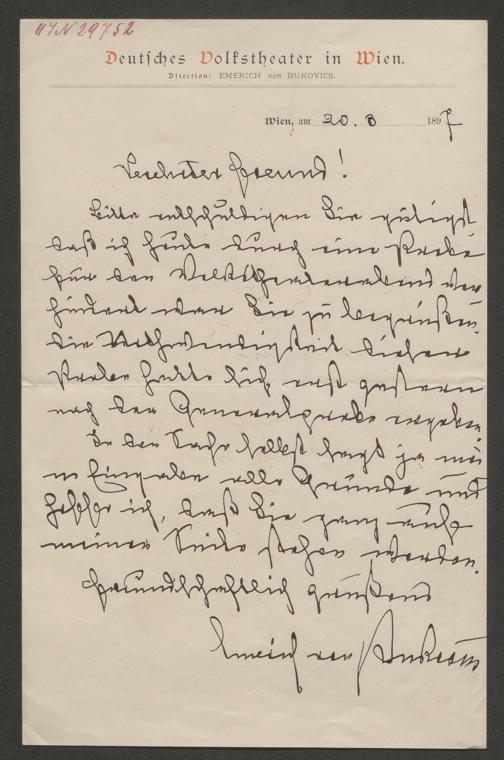 HJN 29752
Deutsches Volkstheater in Wien.
Direction: EMERICH von BUKOVICS.
Wien, am 20. 3 1897
Verehrter Freund!
Bitte entschuldigen Sie gütigst
daß ich heute durch eine Probe
für den Volkstheaterabend ver
hindert war Sie zu begrüßen.
Die Nothwendigkeit dieser
Probe hatte sich erst gestern
nach der Generalprobe ergeben.
In der Sache selbst sagt ja mei
ne Eingabe alle Gründe und
hoffe ich, daß Sie ganz auf
meiner Seite stehen werden.
Freundschaftlich grüßend
Emerich von Bukovics